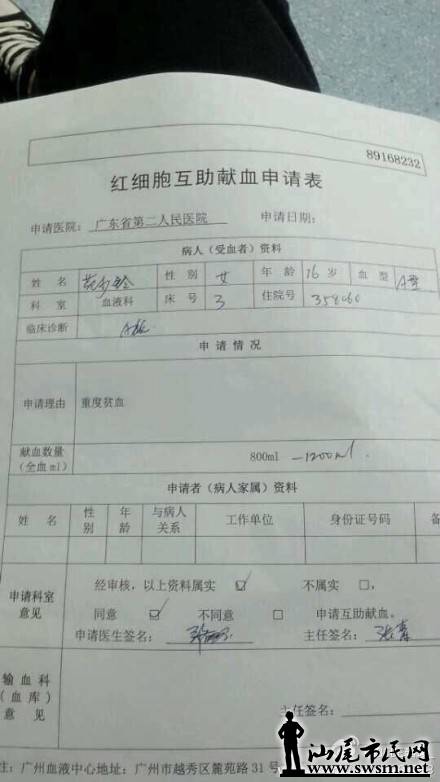 89168232
红细胞互助献血申请表
申请医院: 广东省第二人民医院 申请日期:
病人（受血者）资料
姓 名 性 别 女 年 龄 16岁 血 型 A型
科 室 血液科 床 号 3 住院号 358060
临床诊断
申 请 情 况
申请理由 重度贫血
献血数量
(全血ml) 800ml —1200ml.
申请者（病人家属）资料
姓 名 性别 年龄 与病人关系 工作单位 身份证号码 备
申请科室意见
经审核, 以上资料属实 ☑ 不属实 □,
同意 ☑ 不同意 □ 申请互助献血。
申请医生签名: 主任签名:
输血科
(血库)
意 见
主任签名:
注: 广州血液中心地址: 广州市越秀区麓苑路31号
汕尾市民网
www.swsm.net